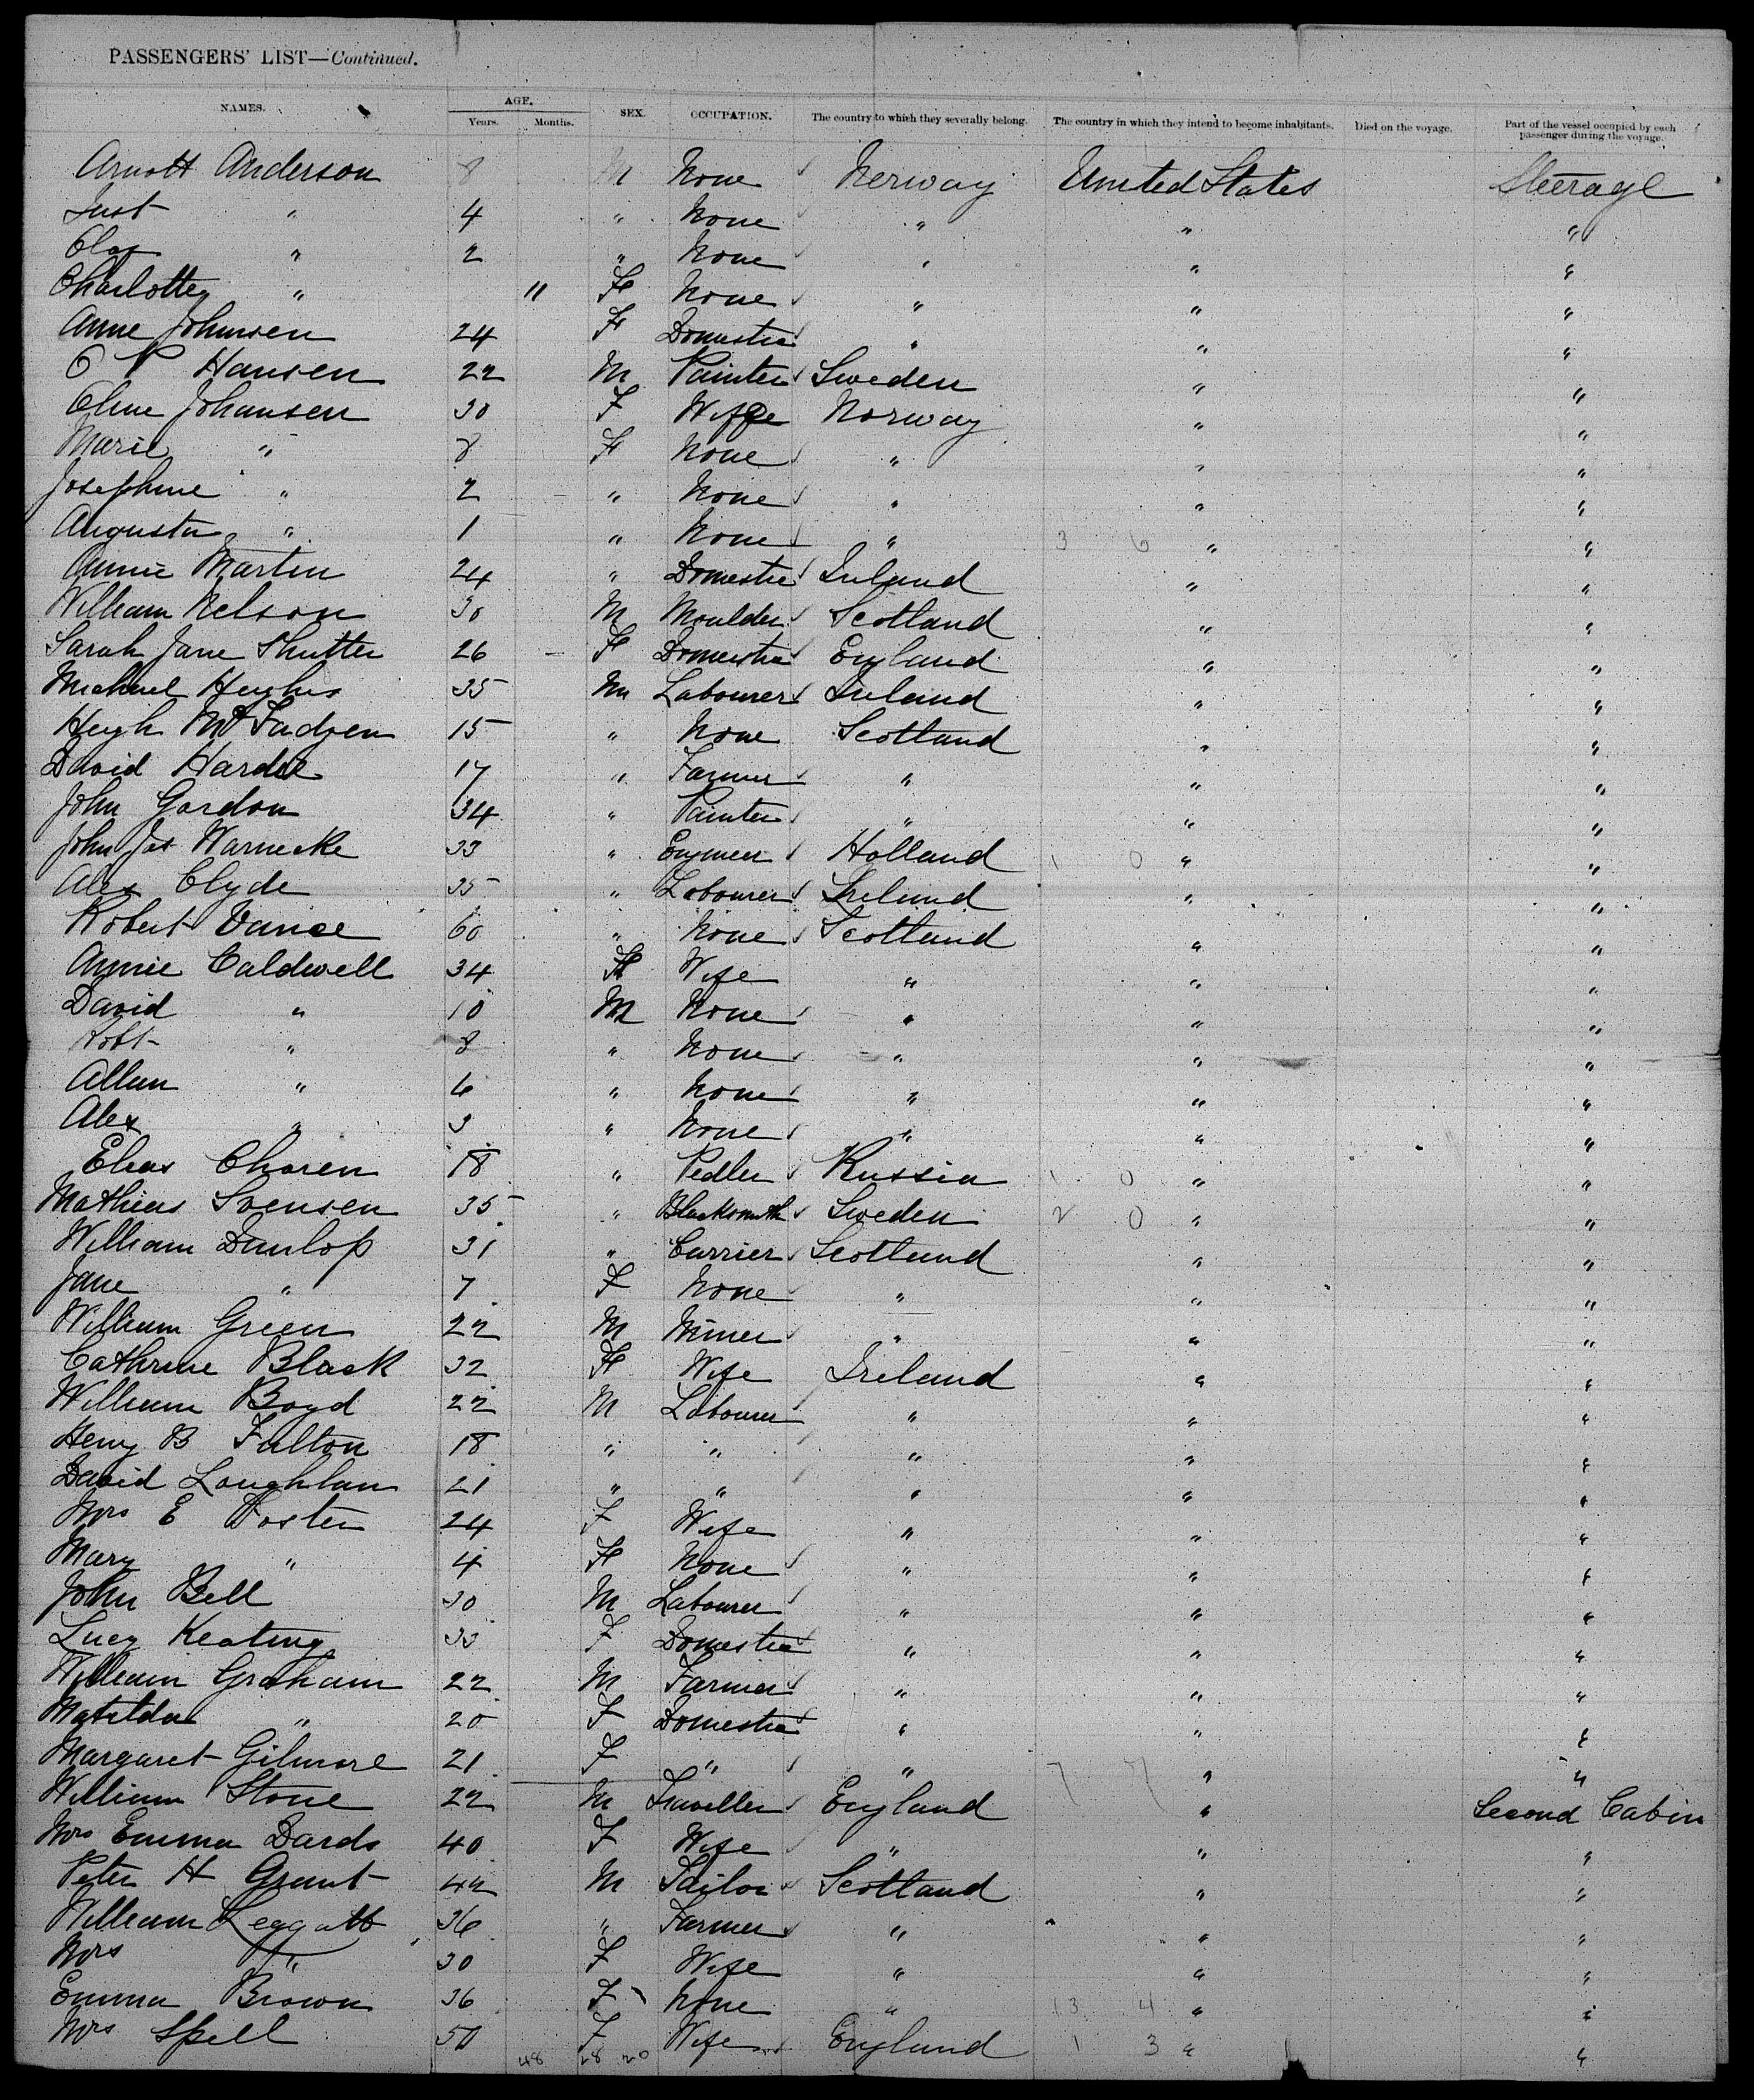 PASSENGERS' LIST—Continued.
NAMES. AGE. Years. Months. SEX. OCCUPATION. The country to which they severally belong. The country in which they intend to become inhabitants. Died on the voyage. Part of the vessel occupied by each passenger during the voyage.
Arnott Anderson 8 M None Norway United States Steerage
Just " 4 " None " " "
Olaf " 2 " None " " "
Charlotte " 11 F None " " "
Anne Johnsen 24 F Domestic " " "
O P Hansen 22 M Painter Sweden " "
Oline Johansen 30 F Wife Norway " "
Marie " 8 F None " " "
Josephine " 2 " None " " "
Augusta " 1 " None " 3 6 " "
Annie Martin 24 " Domestic Ireland " "
William Nelson 30 M Moulder Scotland " "
Sarah Jane Shutter 26 F Domestic England " "
Michael Hughes 35 M Labourer Ireland " "
Hugh McFadyen 15 " None Scotland " "
David Hardie 17 " Farmer " " "
John Gordon 34 " Painter " " "
John Jas Warnecke 33 " Engineer Holland 1 0 " "
Alex Clyde 35 " Labourer Ireland " "
Robert Vance 60 " None Scotland " "
Annie Caldwell 34 F Wife " " "
David " 10 M None " " "
Robt " 8 " None " " "
Allan " 6 " None " " "
Alex " 3 " None " " "
Elias Choren 18 " Pedler Russia 1 0 " "
Mathias Svensen 35 " Blacksmith Sweden 2 0 " "
William Dunlop 31 " Carrier Scotland " "
Jane " 7 F None " " "
William Green 22 M Miner " " "
Cathrine Black 32 F Wife Ireland " "
William Boyd 22 M Labourer " " "
Henry B Fulton 18 " " " " "
David Loughlan 21 " " " " "
Mrs E Foster 24 F Wife " " "
Mary " 4 F None " " "
John Bell 30 M Labourer " " "
Lucy Keating 33 F Domestic " " "
William Graham 22 M Farmer " " "
Matilda " 20 F Domestic " " "
Margaret Gilmore 21 F " " 7 7 " "
William Stone 22 M Traveller England " Second Cabin
Mrs Emma Dards 40 F Wife " " "
Peter H Grant 42 M Tailor Scotland " "
William Leggatt 36 " Farmer " " "
Mrs " 30 F Wife " " "
Emma Brown 36 F None " 13 4 " "
Mrs Spell 50 F Wife England 1 3 " "
48 28 20